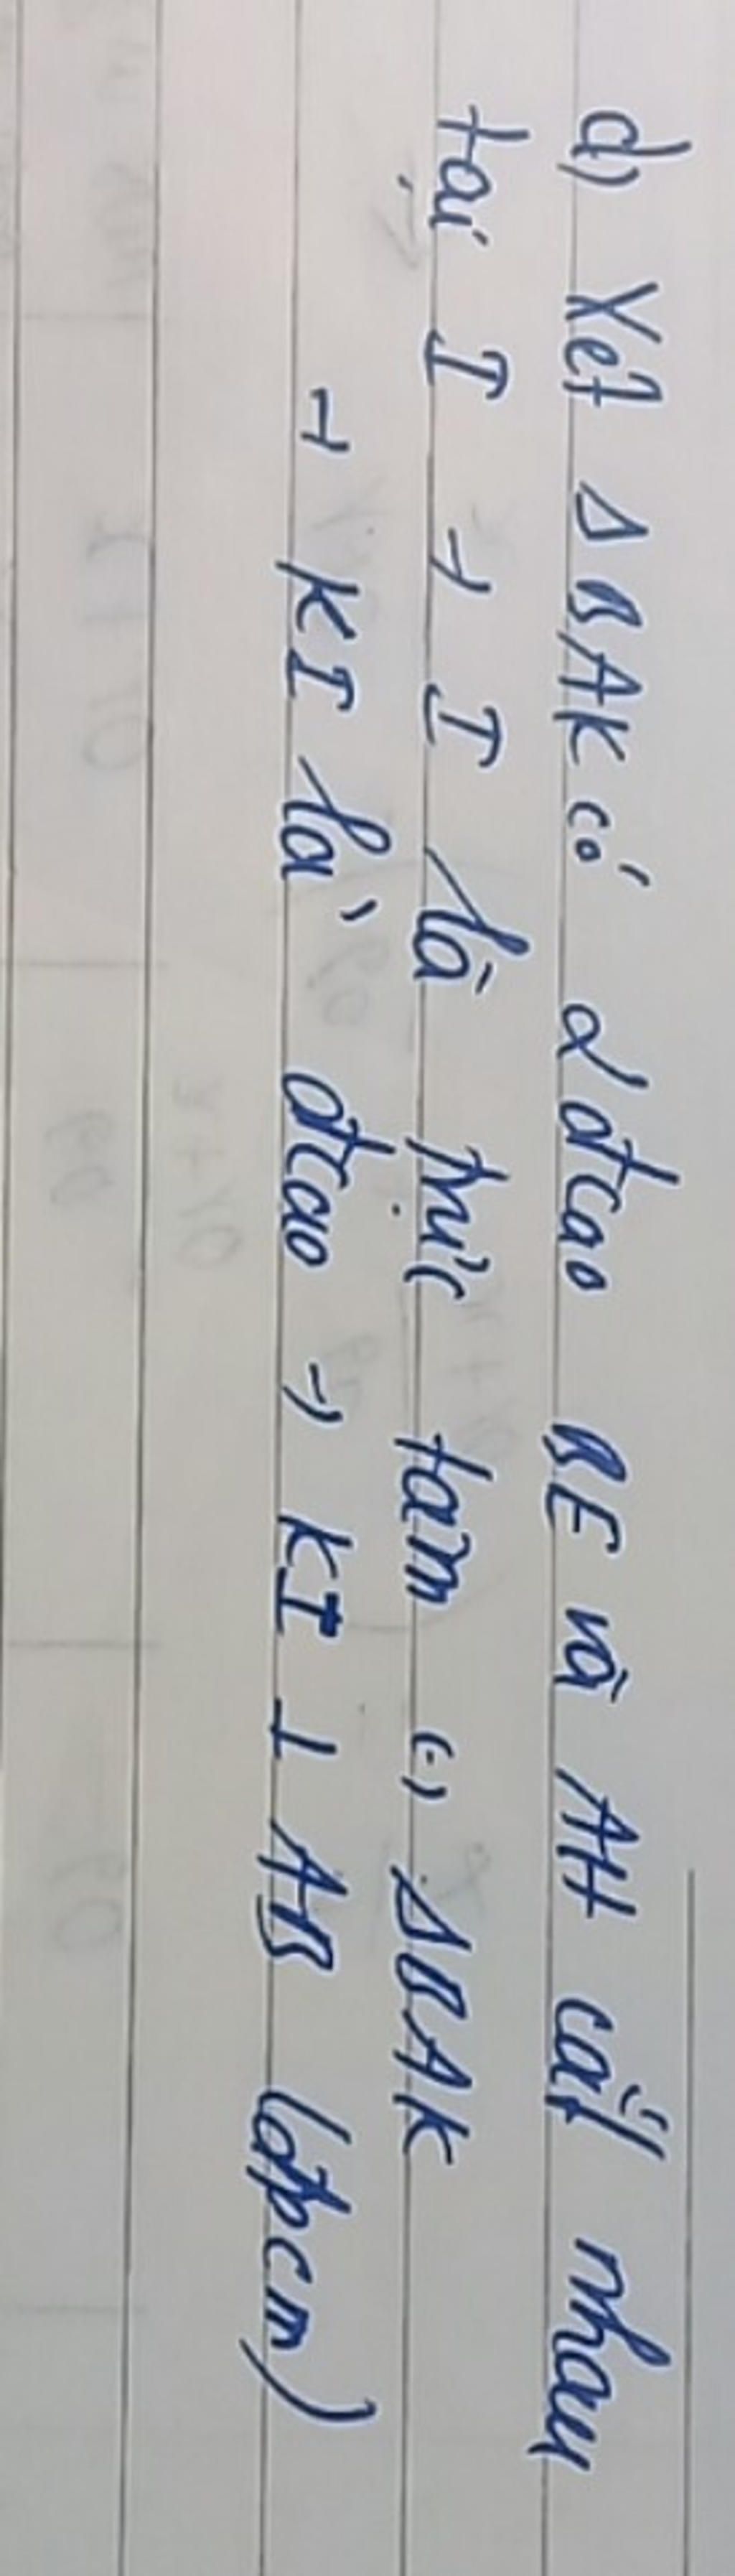 d) Xét Δ BAK có 2 đcao BE và AH cắt nhau
tại I → I là trực tâm (-) ΔBAK
→ KI là đcao → KI ⊥ AB (đpcm)